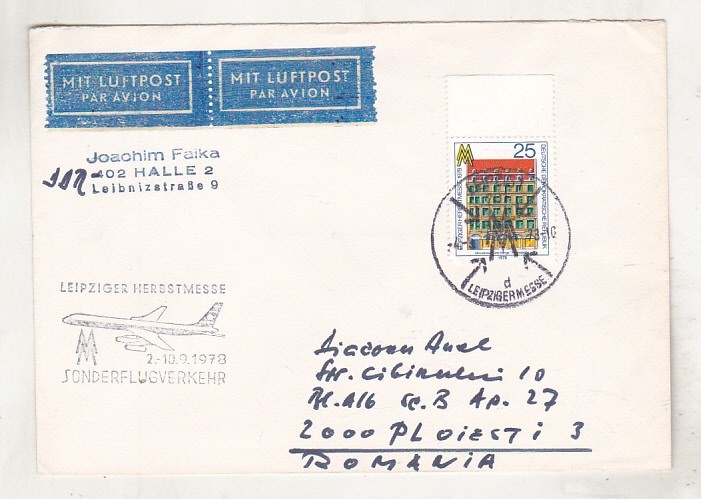 MIT LUFTPOST
PAR AVION
MIT LUFTPOST
PAR AVION
Joachim Falka
402 HALLE 2
Leibnizstraße 9
DDR
25
LEIPZIGER HERBSTMESSE 1978
DEUTSCHE DEMOKRATISCHE REPUBLIK
1978
d
LEIPZIGER MESSE
LEIPZIGER HERBSTMESSE
2.-10.9.1978
SONDERFLUGVERKEHR
Diaconu Aurel
Str. Cibinului 10
Bl. A16 Sc. B Ap. 27
2000 PLOIESTI 3
ROMANIA